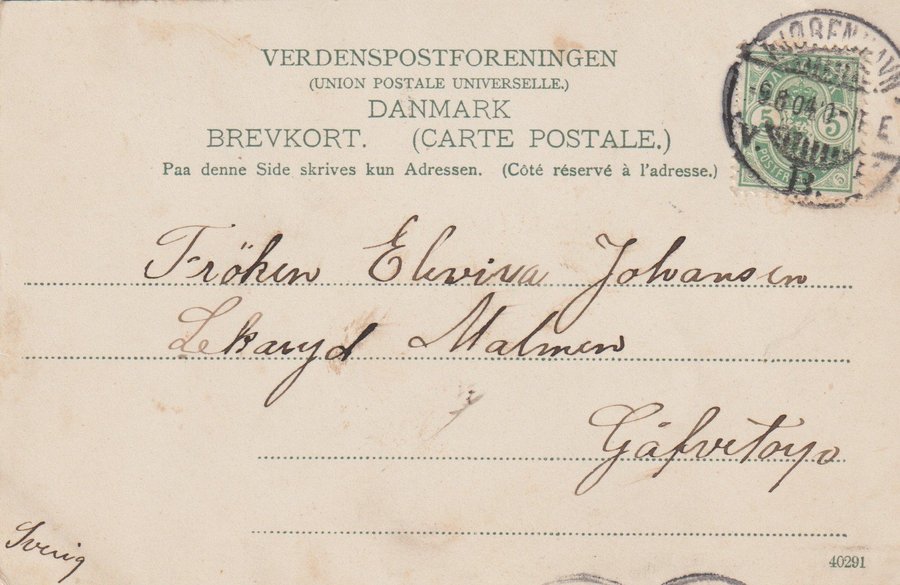 VERDENSPOSTFORENINGEN
(UNION POSTALE UNIVERSELLE.)
DANMARK
BREVKORT. (CARTE POSTALE.)
Paa denne Side skrives kun Adressen. (Côté réservé à l'adresse.)
KJØBENHAVN
6.8.04
5 5
B.
Fröken Elevira Johansen
Lekaryd Malmen
Gáfvetorp
Sverig
40291